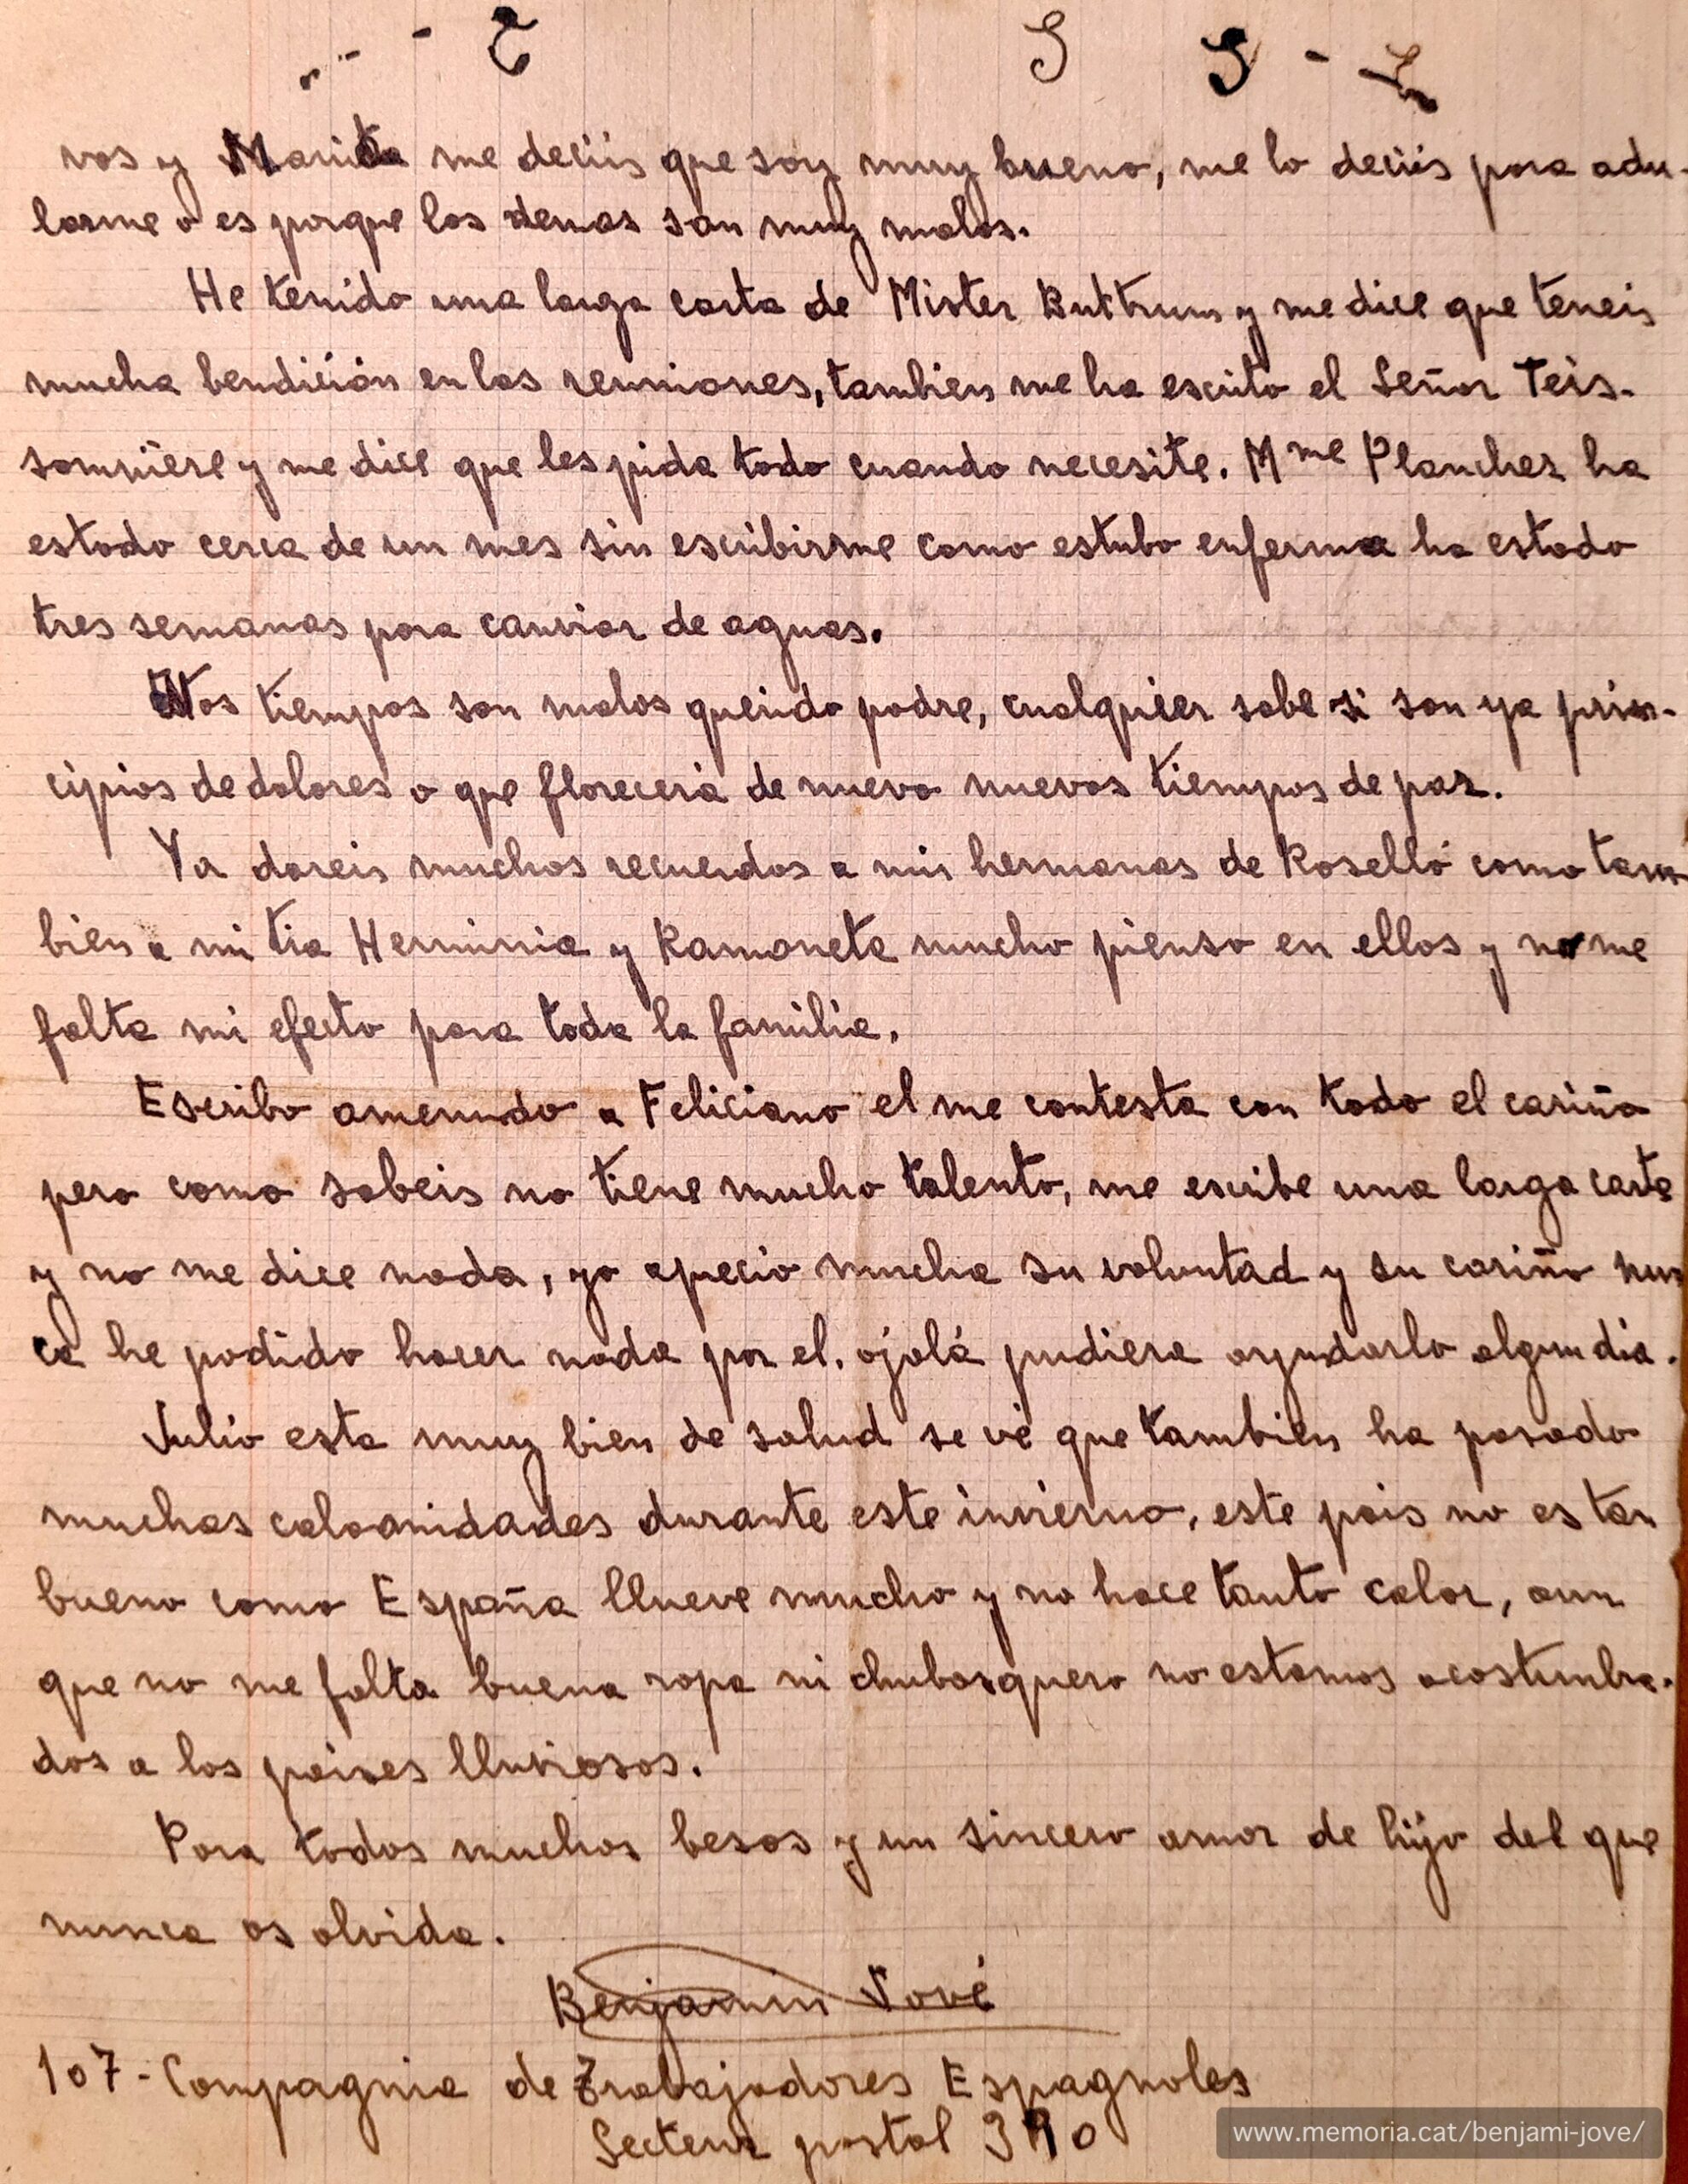 vos y Marieta me deciis que soy muy bueno, me lo deciis para adu-
larme o es porque los demas son muy malos.
He tenido una larga carta de Mister Buttrum y me dice que teneis
mucha bendición en las reuniones, tambien me ha escrito el Señor Teis-
sonnière y me dice que les pida todo cuando necesite. Mme Planchez ha
estado cerca de un mes sin escribirme como estubo enferma ha estado
tres semanas para canviar de aguas.
Nos tiempos son malos querido padre, cualquier sabe si son ya prin-
cipios de dolores o que florecerá de nuevo nuevos tiempos de paz.
Ya dareis muchos recuerdos a mis hermanas de Roselló como tam
bien a mi tia Herminia y Ramoneta mucho pienso en ellos y no me
falta mi efecto para toda la familia.
Escribo amenudo a Feliciano el me contesta con todo el cariño
pero como sabeis no tiene mucho talento, me escribe una larga carta
y no me dice nada, yo apecio mucha su voluntad y su cariño nun
ca he podido hacer nada por el. ojalá pudiera ayudarlo algun dia.
Julio esta muy bien de salud se vé que tambien ha pasado
muchas calamidades durante este invierno, este pais no es tan
bueno como España llueve mucho y no hace tanto calor, aun
que no me falta buena ropa ni chubasquero no estamos acostumbra-
dos a los paises lluviosos.
Para todos muchos besos y un sincero amor de hijo del que
nunca os olvida.
Benjamin Jové
107 - Compagnia de Trabajadores Espagnoles
Secteur postal 390
www.memoria.cat/benjami-jove/